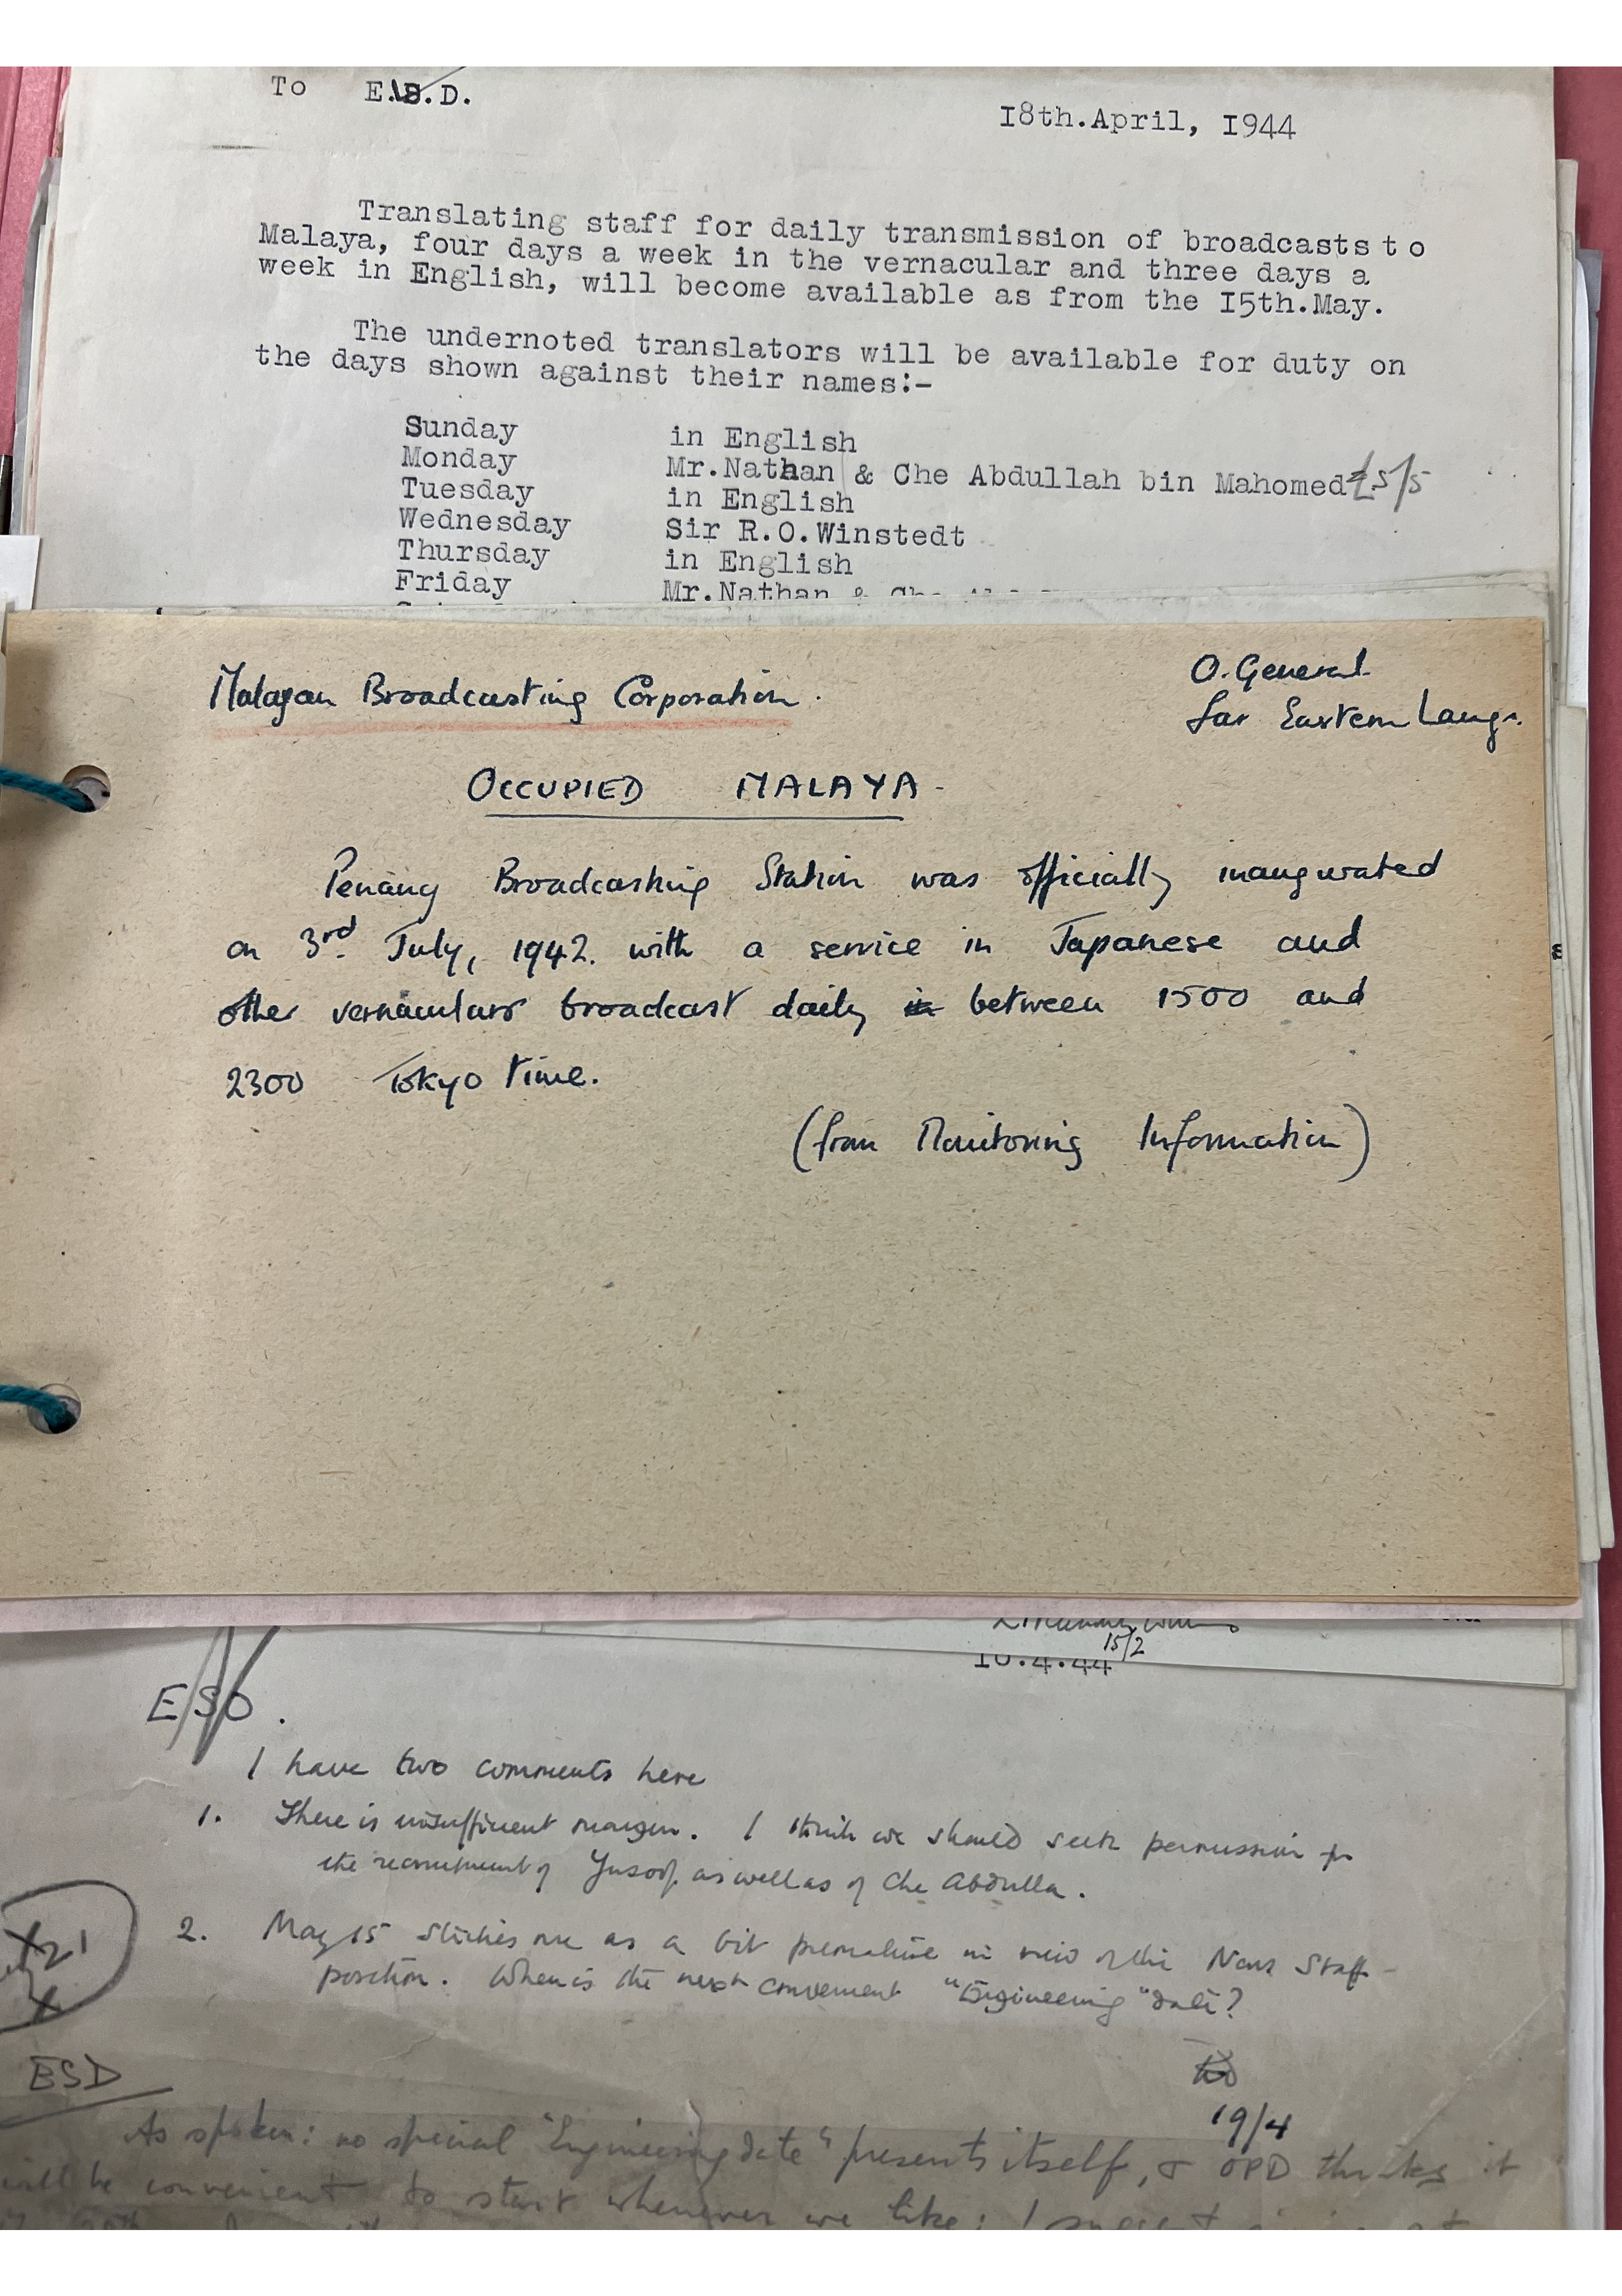 To E.S.D.
18th.April, 1944
Translating staff for daily transmission of broadcasts to
Malaya, four days a week in the vernacular and three days a
week in English, will become available as from the 15th.May.
The undernoted translators will be available for duty on
the days shown against their names:-
Sunday in English
Monday Mr.Nathan & Che Abdullah bin Mahomed £5/5
Tuesday in English
Wednesday Sir R.O.Winstedt
Thursday in English
Friday Mr.Nathan &
Malayan Broadcasting Corporation.
O. General
Far Eastern Langs.
OCCUPIED MALAYA-
Penang Broadcasting Station was officially inaugurated
on 3rd July, 1942. with a service in Japanese and
other vernaculars broadcast daily in between 1500 and
2300 Tokyo time.
(from Monitoring Information)
15/2
10.4.44
ESD.
I have two comments here
1. There is insufficient margin. I think we should seek permission for
the recruitment of Yusoof, as well as of Che Abdulla.
2. May 15 strikes me as a bit premature in view of the News Staff
position. When is the next convenient "Engineering" date?
19/4
ESD
As spoken: no special "Engineering date" presents itself, & OPD thinks it
will be convenient to start whenever we like: I suggest